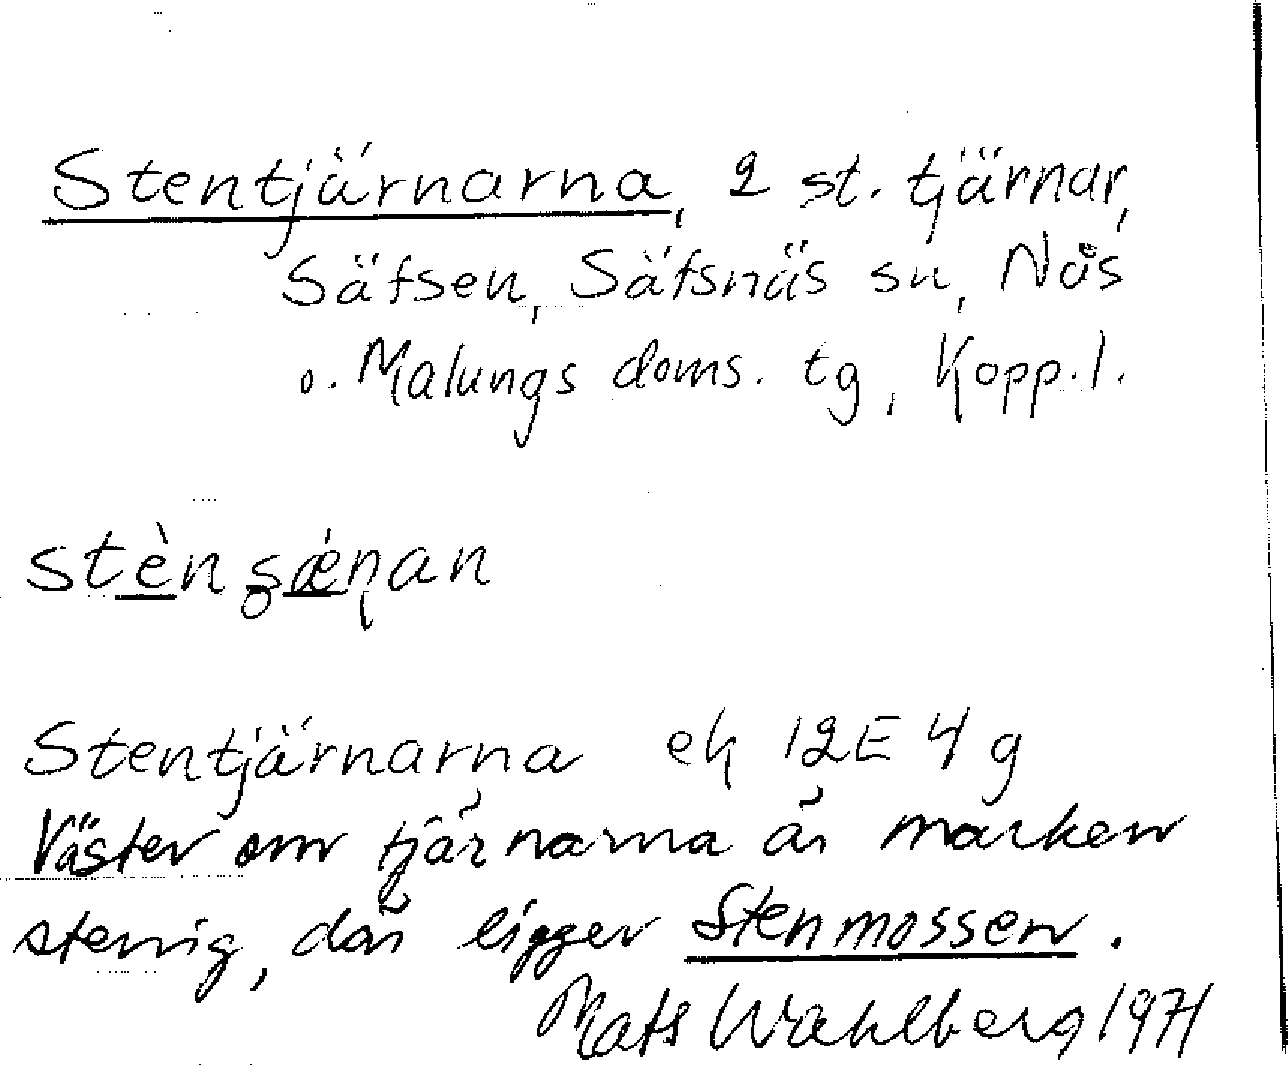 Stentjärnarna, 2 st. tjärnar,
Säfsen, Säfsnäs sn, Nås
o. Malungs doms. tg, Kopp. l.
Stentjärnarna ek 12E 4 g
Väster om tjärnarna är marken
stenig, där ligger Stenmossen.
Mats Wahlberg 1971